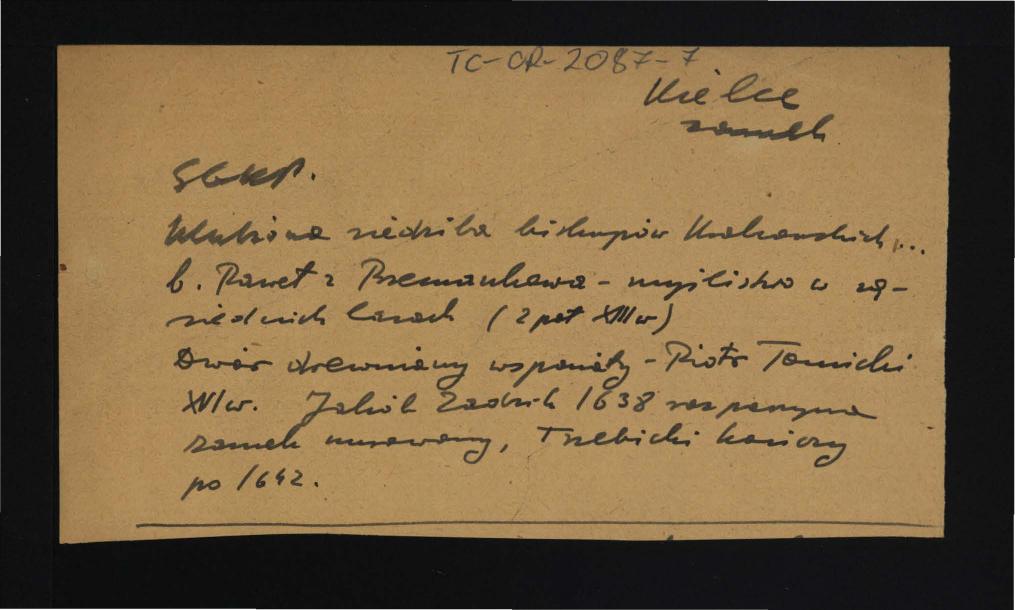 TC-CR-2087-7
Kielce
zamek
SGKP.
Ulubiona siedziba biskupów Krakowskich...
b. Paweł z Przemankowa - myślistwo w są-
siednich lasach (2 poł XIII w)
Dwór drewniany wspaniały - Piotr Tomicki
XVI w. Jakób Zadzik 1638 rozpoczyna
zamek murowany, Trzebicki kończy
po 1642.